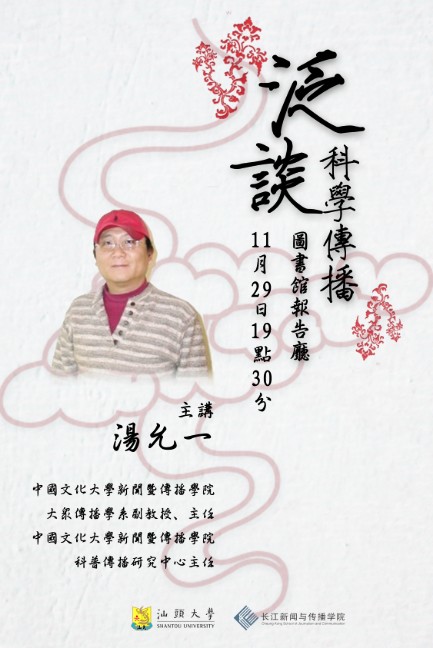 泛談
科學傳播
圖書館報告廳
11月29日19點30分
主講
湯允一
中國文化大學新聞暨傳播學院
大眾傳播學系副教授、主任
中國文化大學新聞暨傳播學院
科普傳播研究中心主任
汕頭大學
SHANTOU UNIVERSITY
长江新闻与传播学院
Cheung Kong School of Journalism and Communication